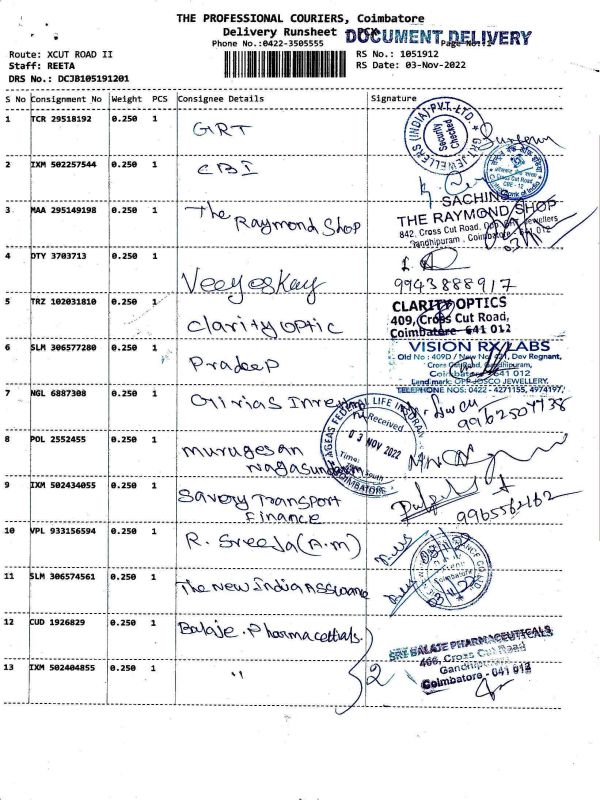 THE PROFESSIONAL COURIERS, Coimbatore
Delivery Runsheet
DOCUMENT DELIVERY
Phone No.:0422-3505555
Page No.:1
Route: XCUT ROAD II
RS No.: 1051912
Staff: REETA
RS Date: 03-Nov-2022
DRS No.: DCJB105191201
S No Consignment No Weight PCS Consignee Details Signature
1 TCR 29518192 0.250 1 GRT
GRT JEWELLERS (INDIA) PVT. LTD.
Security Checked
2 IXM 502257544 0.250 1 CBI
Cross Cut Road,
CBE - 12
3 MAA 295149198 0.250 1 The Raymond Shop
SACHINS
THE RAYMOND SHOP
842, Cross Cut Road, Opp. GRT Jewellers
Gandhipuram, Coimbatore - 641 012
4 DTY 3703713 0.250 1 Veeyeskay
9943888917
5 TRZ 102031810 0.250 1 Clarity optic
CLARITY OPTICS
409, Cross Cut Road,
Coimbatore 641 012
6 SLM 306577280 0.250 1 Pradeep
VISION RX LABS
Old No : 409D / New No 421, Dev Regnant,
Cross Cut Road, Gandhipuram,
Coimbatore 641 012
Land mark: OPP JOSCO JEWELLERY,
TELEPHONE NOS: 0422 - 4271155, 4974197,
7 NGL 6887308 0.250 1
AGEAS FEDERAL LIFE INSURAN
Received
03 NOV 2022
Time:
South
COIMBATORE
8 POL 2552455 0.250 1 murugesan
Nagasundaram
9 IXM 502434055 0.250 1 Savery Transport
Finance
10 VPL 933156594 0.250 1 R. Sreeja (A.m)
11 SLM 306574561 0.250 1 The New India Assurance
Coimbatore
12 CUD 1926829 0.250 1 Balaje. Pharmacettials.
SRI BALAJE PHARMACEUTICALS
466, Cross Cut Road
Gandhipuram
Coimbatore - 641 012
13 IXM 502404855 0.250 1 "
2